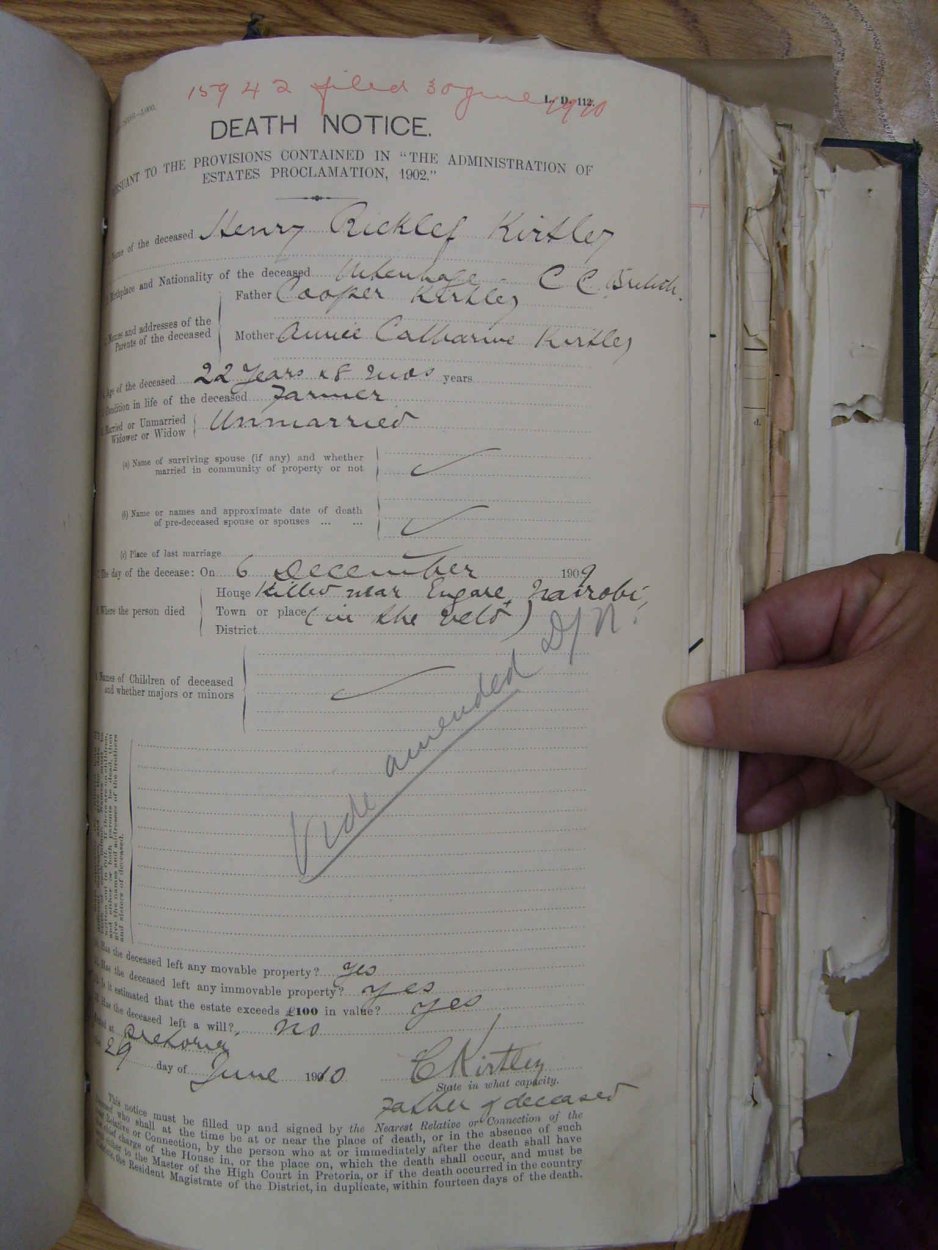 15942 filed 30 June 1910
L. D. 112.
DEATH NOTICE.
TO THE PROVISIONS CONTAINED IN "THE ADMINISTRATION OF
ESTATES PROCLAMATION, 1902."
of the deceased Henry Ricklef Kirtley
Birthplace and Nationality of the deceased Uitenhage - C C British.
Names and addresses of the
Parents of the deceased
Father Cooper Kirtley
Mother Annie Catharine Kirtley
Age of the deceased 22 Years & 8 mos years
Condition in life of the deceased Farmer
Married or Unmarried
Widower or Widow
Unmarried
(a) Name of surviving spouse (if any) and whether
married in community of property or not
(b) Name or names and approximate date of death
of pre-deceased spouse or spouses ... ...
(c) Place of last marriage
The day of the decease: On 6 December 1909
Where the person died
House Killed near Engare Nairobi,
Town or place (in the veld)
District
Names of Children of deceased
and whether majors or minors
Vide amended D/N.
give the names and addresses of the brothers
and sisters of deceased.
Has the deceased left any movable property? yes
Has the deceased left any immovable property? yes
Is it estimated that the estate exceeds £100 in value? yes
Has the deceased left a will? no
at Pretoria
29 day of June 1910
C Kirtley
State in what capacity.
Father of deceased
This notice must be filled up and signed by the Nearest Relative or Connection of the
who shall at the time be at or near the place of death, or in the absence of such
Relative or Connection, by the person who at or immediately after the death shall have
charge of the House in, or the place on, which the death shall occur, and must be
to the Master of the High Court in Pretoria, or if the death occurred in the country
the Resident Magistrate of the District, in duplicate, within fourteen days of the death.